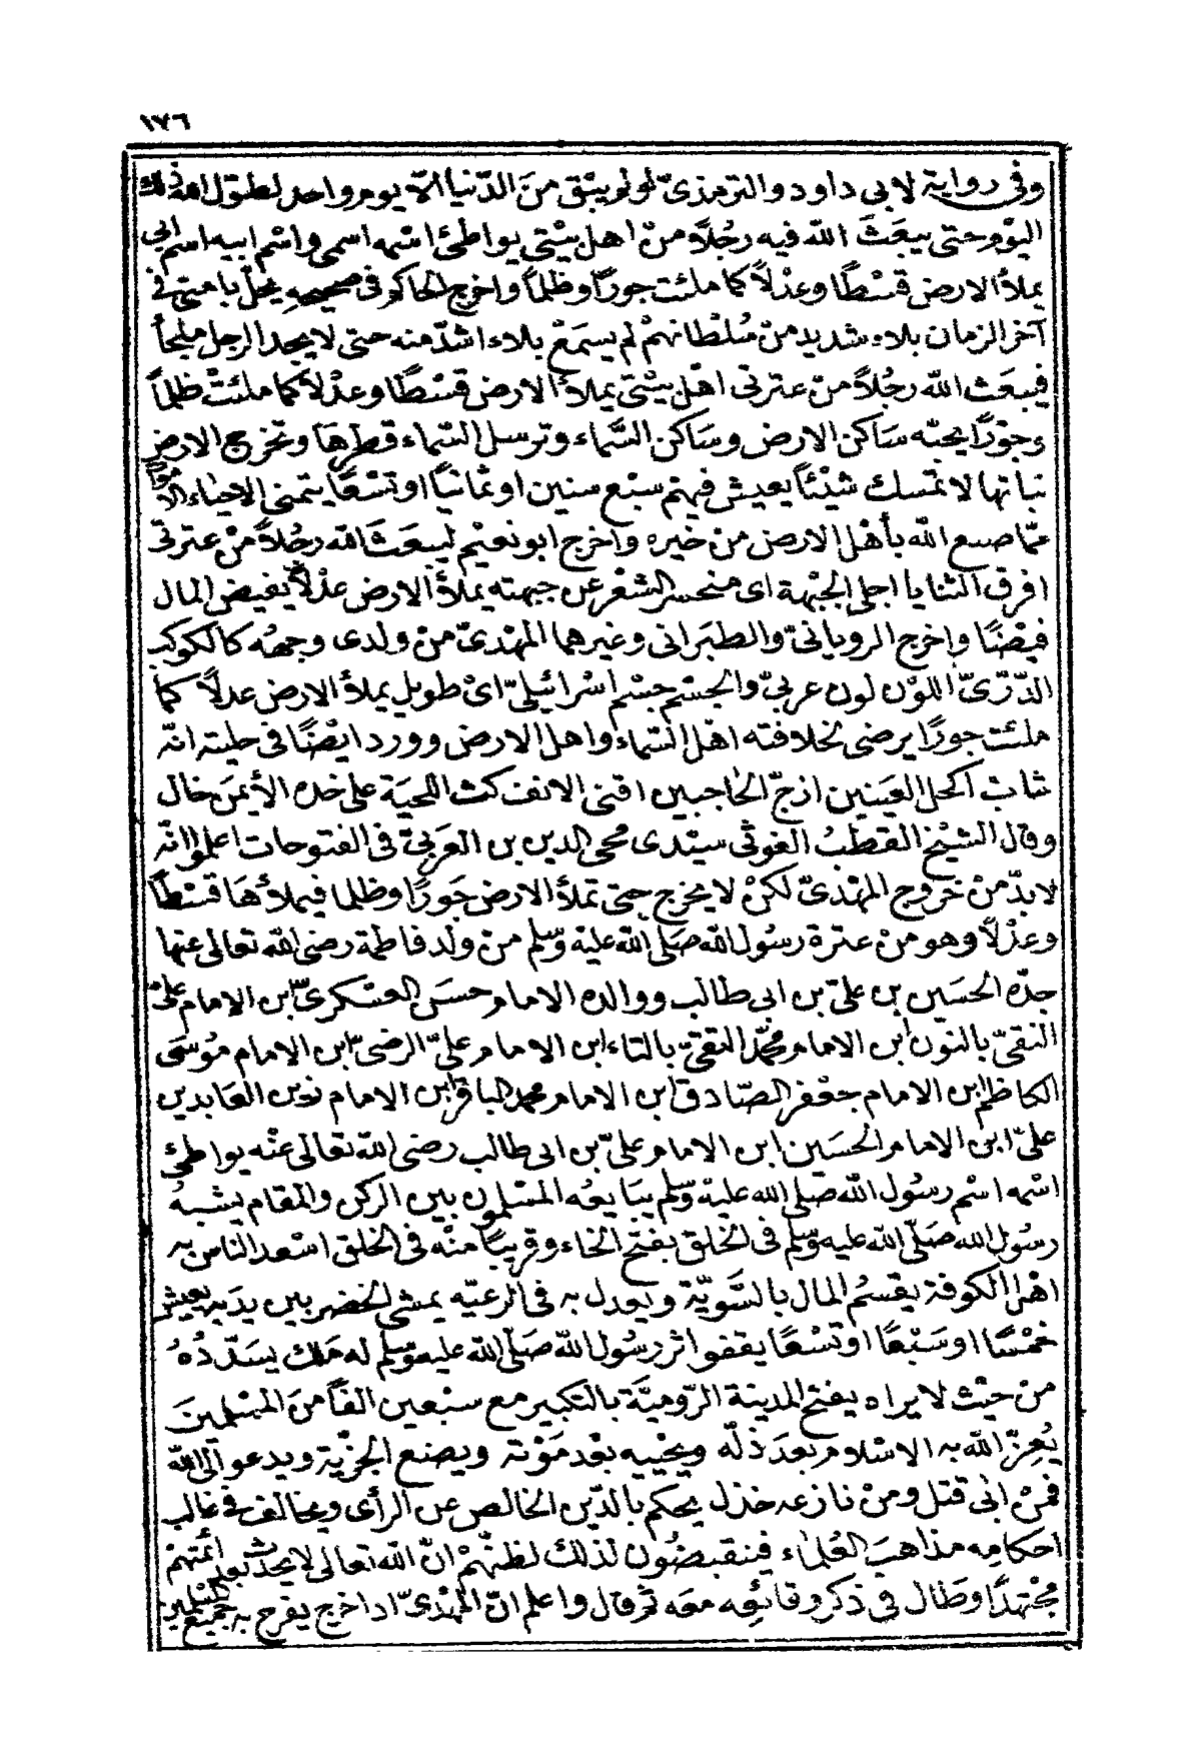 ١٧٦
وفى رواية لابى داود والترمذىّ لو لم يبْق منَ الدّنيا الّا يوم واحد لطوّل الله ذلك
اليوْم حتى يبعَثَ الله فيه رجُلًا منْ اهل بيْتى يواطئ اسْمه اسمى واسْم ابيه اسم ابى
يملأ الارض قسْطًا وعدْلًا كما ملئت جورًا وظلمًا واخرج الحاكم فى صحيحه يحلّ بامتى فى
آخر الزمان بلاء شديد منْ سُلطانهمْ لم يسمَعْ بلاء اشدّ منه حتى لا يجد الرجل ملجأ
فيبعَث الله رجُلًا منْ عترتى اهْل بيْتى يملأ الارض قسْطًا وعدْلًا كما ملئتْ ظلمًا
وجوْرًا يحبّه سَاكن الارض وسَاكن السَّماء وترسل السّماء قطرهَا وتخرج الارض
نباتها لا تمسك شيْئًا يعيش فيهم سبْع سنين او ثمانيًا او تسْعًا يتمنى الاحياء الاموات
ممّا صنع الله بأهْل الارض منْ خيره واخرج ابو نعيْم ليبعَثَ الله رجُلًا منْ عترتى
افرق الثنايا اجلى الجبْهة اى منحسر الشعْر عن جبهته يملأ الارض عدْلًا يفيض المال
فيْضًا واخرج الرويانىّ والطبَرانى وغيرهما المهْدىّ منْ ولدى وجهُه كالكوكب
الدّرّىّ اللوْن لون عربىّ والجسْم جسْم اسْرائيلىّ اىْ طويل يملأ الارض عدلًا كما
ملئت جورًا يرضى بخلافته اهْل السّماء واهل الارض وورد ايضًا فى حليته انّه
شابّ اكحل العيَنين ازجّ الحَاجبين اقنى الانف كث اللحيَة على خده الأيمنَ خال
وقال الشيْخ القطبُ الغوثى سيّدى محى الدين بن العَربىّ فى الفتوحات اعلموا انّه
لابدّ منْ خروج المهْدىّ لكنْ لا يخرج حتى تملأ الارض جَورًا وظلما فيملأهَا قسْطًا
وعدْلًا وهو منْ عترة رسُول الله صَلى الله عليْه وسّلم منْ ولد فاطمة رضى الله تعالى عنها
جدّه الحسَين بن علىّ بن ابى طالب ووالده الامام حسَن العسْكرىّ ابن الامام علىّ
النقىّ بالنون ابن الامام محمّد التقىّ بالتاء ابن الامام علىّ الرضى ابن الامام مُوسَى
الكاظم ابن الامام جعْفر الصّادق ابن الامام محمد الباقر ابن الامام زين العَابدين
علىّ ابن الامام الحسَين ابن الامام علىّ بن ابى طالب رضى الله تعالى عنْه يواطئ
اسْمه اسْم رسُول الله صَلى الله عليْه وسّلم يبَايعُه المسْلمون بين الركن والمقام يشبهُ
رسُول الله صَلّى الله عليه وسّلم فى الخلق بفتح الخاء وقريبًا منْه فى الخلق اسْعد الناس به
اهْل الكوفة يقسْمُ المال بالسَّويّة ويعدل به فى الرعيّه يمشى الخضر بين يديْه يعيش
خمْسًا او سَبْعًا او تسْعًا يقفو اثر رسُول الله صَلّى الله عليه وسّلم له مَلك يسَدّدُهُ
منْ حيْث لا يراه يفتح المدينة الرّوميَّة بالتكبير مع سبْعين الفًا منَ المسْلمينَ
يُعِزّ الله به الاسْلام بعدَ ذلّه ويحْييه بعْد مَوْته ويضع الجزْية ويدعو الى الله
فمنْ ابى قتل ومنْ نازعه خذل يحكم بالدّين الخالص عن الرأى ويخالف فى غالب
احكامه مذاهبَ العُلماء فينقبضُون لذلك لظنّهمْ انّ الله تعالى لا يحدث بعد أئمّتهمْ
مجْتهدًا وطال فى ذكر وقائعه معَه ثم قال واعلم انّ المهْدىّ اذا خرج يفرح به جَميع المسْلمين